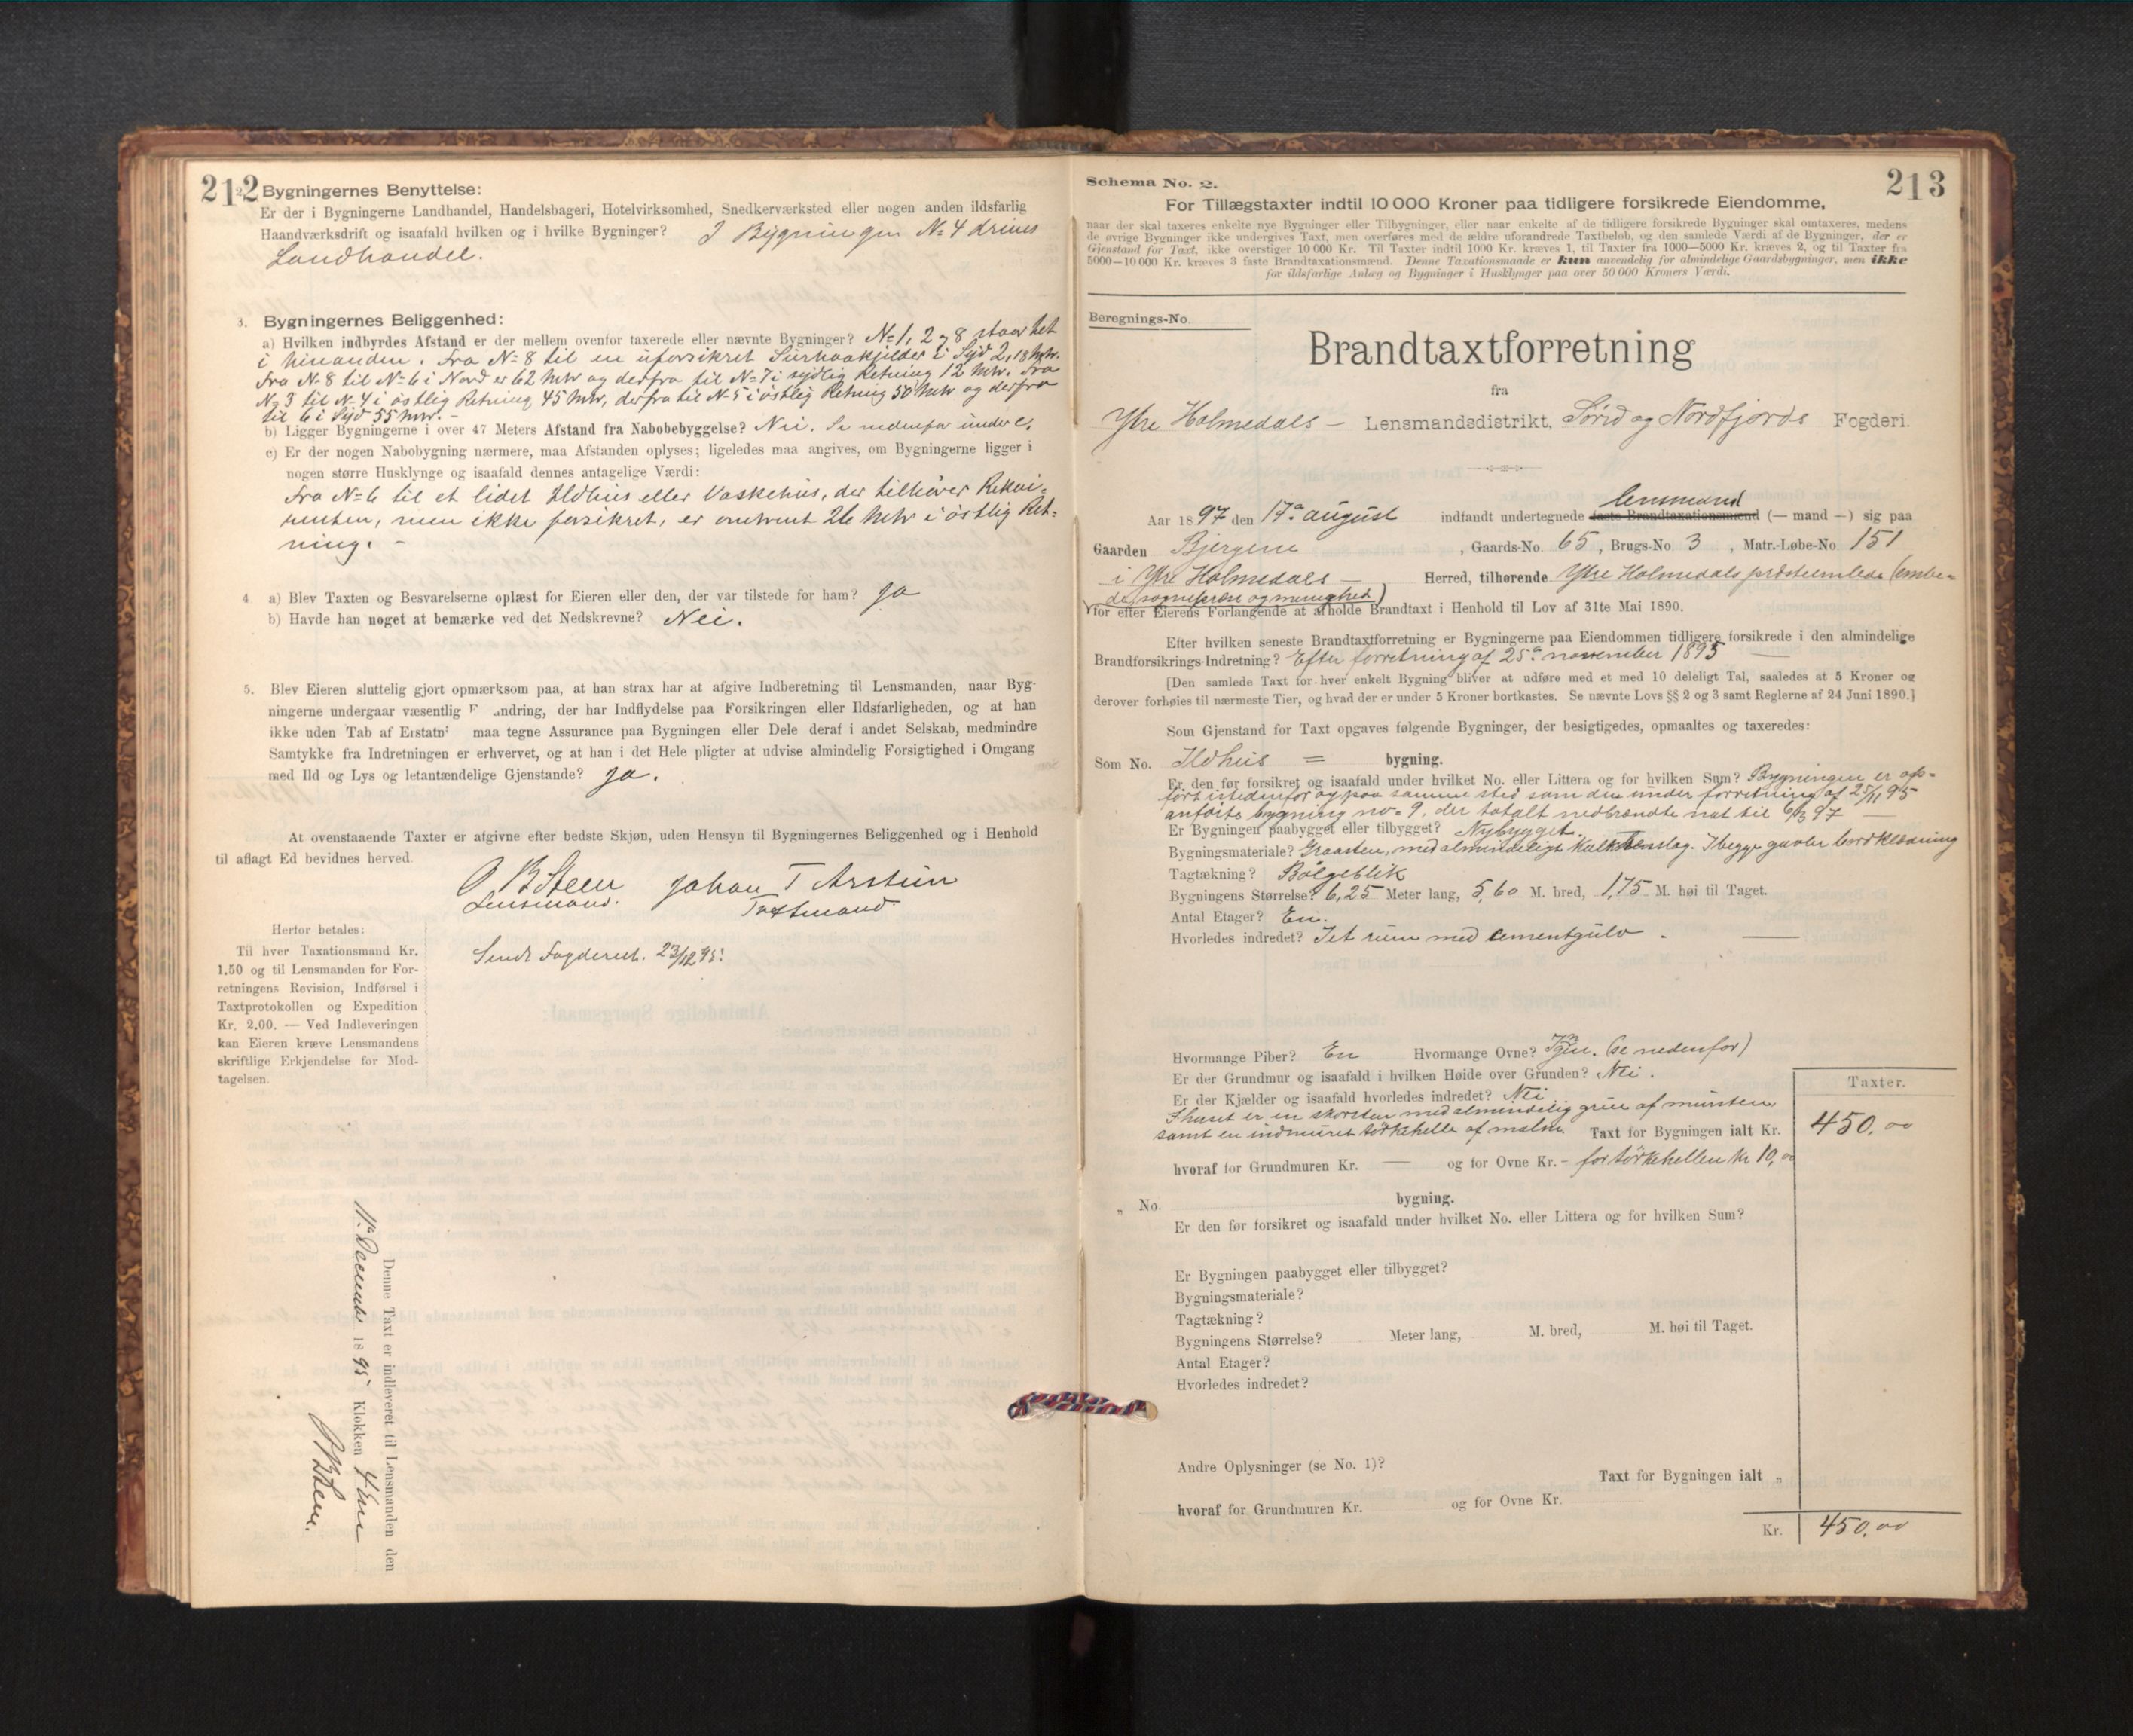 212
Bygningernes Benyttelse:
Er der i Bygningerne Landhandel, Handelsbageri, Hotelvirksomhed, Snedkerværksted eller nogen anden ildsfarlig
Haandværksdrift og isaafald hvilken og i hvilke Bygninger? I Bygningen No 4 drives
Landhandel.
3. Bygningernes Beliggenhed:
a) Hvilken indbyrdes Afstand er der mellem ovenfor taxerede eller nævnte Bygninger? No 1, 2 og 8 staar tet
i hinanden. Fra No 8 til en uforsikret i Syd 2,18 Mtr.
Fra No 8 til No 6 i Nord er 62 Mtr og derfra til No 7 i sydlig Retning 12 Mtr. Fra
No 3 til No 4 i østlig Retning 45 Mtr, derfra til No 5 i østlig Retning 50 Mtr og derfra
til 6 i Syd 55 Mtr. –
b) Ligger Bygningerne i over 47 Meters Afstand fra Nabobebyggelse? Nei. Se nedenfor under c.
c) Er der nogen Nabobygning nærmere, maa Afstanden oplyses; ligeledes maa angives, om Bygningerne ligger i
nogen større Husklynge og isaafald dennes antagelige Værdi:
Fra No 6 til et lidet Ildhus eller Vaskehus, der tilhører Rekvi-
renten, men ikke forsikret, er omtrent 26 Mtr i østlig Ret-
ning. –
4. a) Blev Taxten og Besvarelserne oplæst for Eieren eller den, der var tilstede for ham? Ja
b) Havde han noget at bemærke ved det Nedskrevne? Nei.
5. Blev Eieren sluttelig gjort opmærksom paa, at han strax har at afgive Indberetning til Lensmanden, naar Byg-
ningerne undergaar væsentlig F andring, der har Indflydelse paa Forsikringen eller Ildsfarligheden, og at han
ikke uden Tab af Erstatni maa tegne Assurance paa Bygningen eller Dele deraf i andet Selskab, medmindre
Samtykke fra Indretningen er erhvervet, og at han i det Hele pligter at udvise almindelig Forsigtighed i Omgang
med Ild og Lys og letantændelige Gjenstande? Ja.
At ovenstaaende Taxter er afgivne efter bedste Skjøn, uden Hensyn til Bygningernes Beliggenhed og i Henhold
til aflagt Ed bevidnes herved.
O B Steen Johan T
Lensmand. Taxtmand
Herfor betales:
Til hver Taxationsmand Kr.
1,50 og til Lensmanden for For-
retningens Revision, Indførsel i
Taxtprotokollen og Expedition
Kr. 2,00. — Ved Indleveringen
kan Eieren kræve Lensmandens
skriftlige Erkjendelse for Mod-
tagelsen.
Sendt Fogderiet. 23/12 95.
Denne Taxt er indleveret til Lensmanden den
11te December 1895 Klokken 4 Em
OBSteen.
213
Schema No. 2.
For Tillægstaxter indtil 10 000 Kroner paa tidligere forsikrede Eiendomme,
naar der skal taxeres enkelte nye Bygninger eller Tilbygninger, eller naar enkelte af de tidligere forsikrede Bygninger skal omtaxeres, medens
de øvrige Bygninger ikke undergives Taxt, men overføres med de ældre uforandrede Taxtbeløb, og den samlede Værdi af de Bygninger, der er
Gjenstand for Taxt, ikke overstiger 10 000 Kr. Til Taxter indtil 1000 Kr. kræves 1, til Taxter fra 1000—5000 Kr. kræves 2, og til Taxter fra
5000—10 000 Kr. kræves 3 faste Brandtaxationsmænd. Denne Taxationsmaade er kun anvendelig for almindelige Gaardsbygninger, men ikke
for ildsfarlige Anlæg og Bygninger i Husklynger paa over 50 000 Kroners Værdi.
Beregnings-No.
Brandtaxtforretning
fra
Ytre Holmedals – Lensmandsdistrikt, Sønd og Nordfjords Fogderi.
Aar 1897 den 17de august indfandt undertegnede lensmand faste Brandtaxationsmænd (— mand —) sig paa
Gaarden Bjergene, Gaards-No. 65, Brugs-No. 3, Matr.-Løbe-No. 151
i Ytre Holmedals – Herred, tilhørende Ytre Holmedals præsteenkede (embe-
de, sogneprest og menighed)
for efter Eierens Forlangende at afholde Brandtaxt i Henhold til Lov af 31te Mai 1890.
Efter hvilken seneste Brandtaxtforretning er Bygningerne paa Eiendommen tidligere forsikrede i den almindelige
Brandforsikrings-Indretning? Efter forretning af 25de november 1895
[Den samlede Taxt for hver enkelt Bygning bliver at udføre med et med 10 deleligt Tal, saaledes at 5 Kroner og
derover forhøies til nærmeste Tier, og hvad der er under 5 Kroner bortkastes. Se nævnte Lovs §§ 2 og 3 samt Reglerne af 24 Juni 1890.]
Som Gjenstand for Taxt opgaves følgende Bygninger, der besigtigedes, opmaaltes og taxeredes:
Som No. Ildhus = bygning.
Er den før forsikret og isaafald under hvilket No. eller Littera og for hvilken Sum? Bygningen er op-
ført istedenfor og paa samme sted som den under forretning af 25/11 95
anførte bygning no. 9, der totalt nedbrændte nat til 6/3 97
Er Bygningen paabygget eller tilbygget? Nybygget.
Bygningsmateriale? Graasten, med almindeligt kalkbeslag. I begge gavler bordklædning
Tagtækning? Bølgeblik
Bygningens Størrelse? 6,25 Meter lang, 5,60 M. bred, 1,75 M. høi til Taget.
Antal Etager? En.
Hvorledes indredet? I et rum med cementgulv.
Hvormange Piber? En Hvormange Ovne? Ingen. (se nedenfor)
Er der Grundmur og isaafald i hvilken Høide over Grunden? Nei.
Er der Kjælder og isaafald hvorledes indredet? Nei
I huset er en skorsten med almindelig grue af mursten
samt en indmuret tørkehelle af malm. Taxt for Bygningen ialt Kr.
Taxter.
450,00
hvoraf for Grundmuren Kr. — og for Ovne Kr. – for tørkehellen kr 10,00
„ No. bygning.
Er den før forsikret og isaafald under hvilket No. eller Littera og for hvilken Sum?
Er Bygningen paabygget eller tilbygget?
Bygningsmateriale?
Tagtækning?
Bygningens Størrelse? Meter lang, M. bred, M. høi til Taget.
Antal Etager?
Hvorledes indredet?
Andre Oplysninger (se No. 1)?
Taxt for Bygningen ialt „
hvoraf for Grundmuren Kr. og for Ovne Kr.
Kr. 450,00